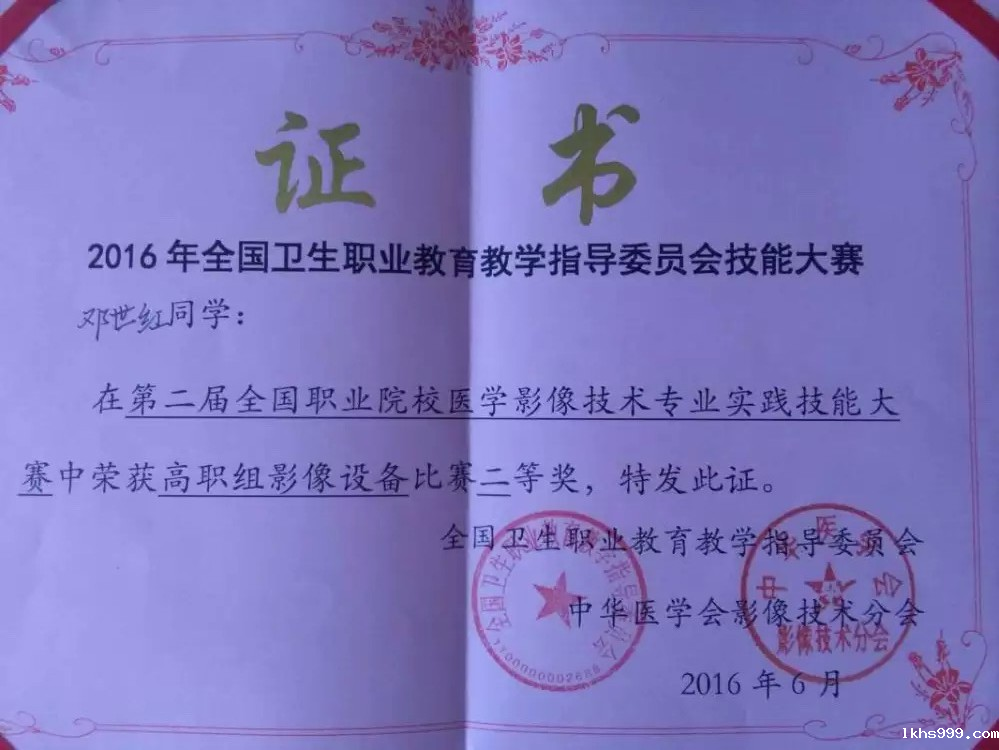 证 书
2016年全国卫生职业教育教学指导委员会技能大赛
邓世红同学：
在第二届全国职业院校医学影像技术专业实践技能大
赛中荣获高职组影像设备比赛二等奖，特发此证。
全国卫生职业教育教学指导委员会
中华医学会影像技术分会
2016年6月
全国卫生职业教育教学指导委员会
中华医学会
影像技术分会
lkhs999.com